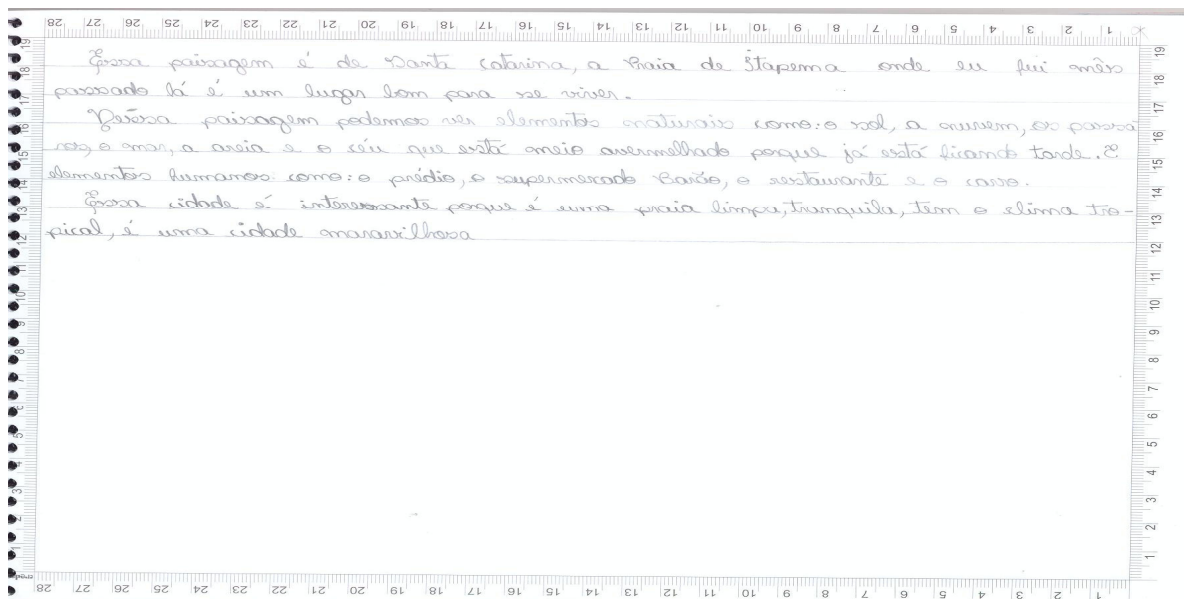 Essa paisagem é de Santa Catarina, a Praia de Itapema onde eu fui mês
passado lá é um lugar bom para se viver.
Dessa paisagem podemos ver elementos naturais como: o sol, a nuvem, os passa
ros, o mar, a areia e o céu que está meio avermelhado porque já está ficando tarde. E
elementos humanos como: o prédio, o supermercado Barão, o restaurante e o carro.
Essa cidade é interessante porque é uma praia limpa, tranquila, tem o clima tro-
pical, é uma cidade maravilhosa